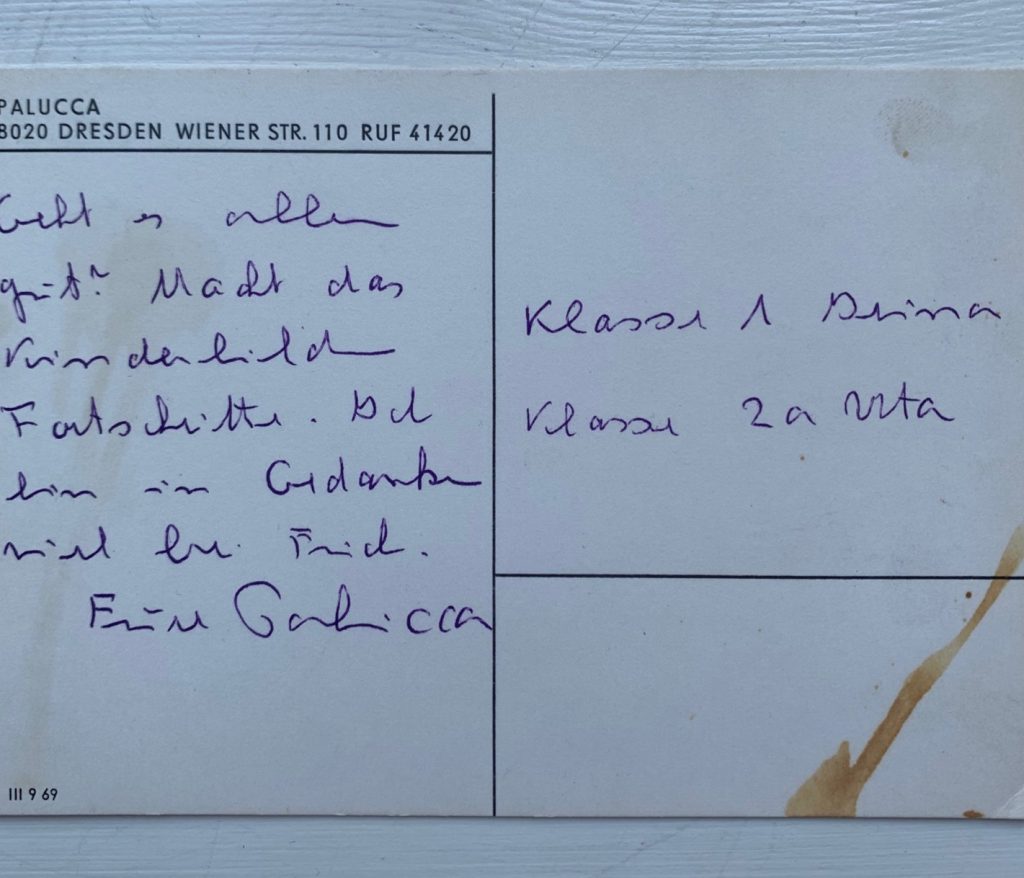 PALUCCA
8020 DRESDEN WIENER STR. 110 RUF 41420
Geht es allen
gut? Macht das
Kinderbild
Fortschritte. Ich
bin in Gedanken
viel bei Euch.
Eure Palucca
III 9 69
Klasse 1
Klasse 2a Uta